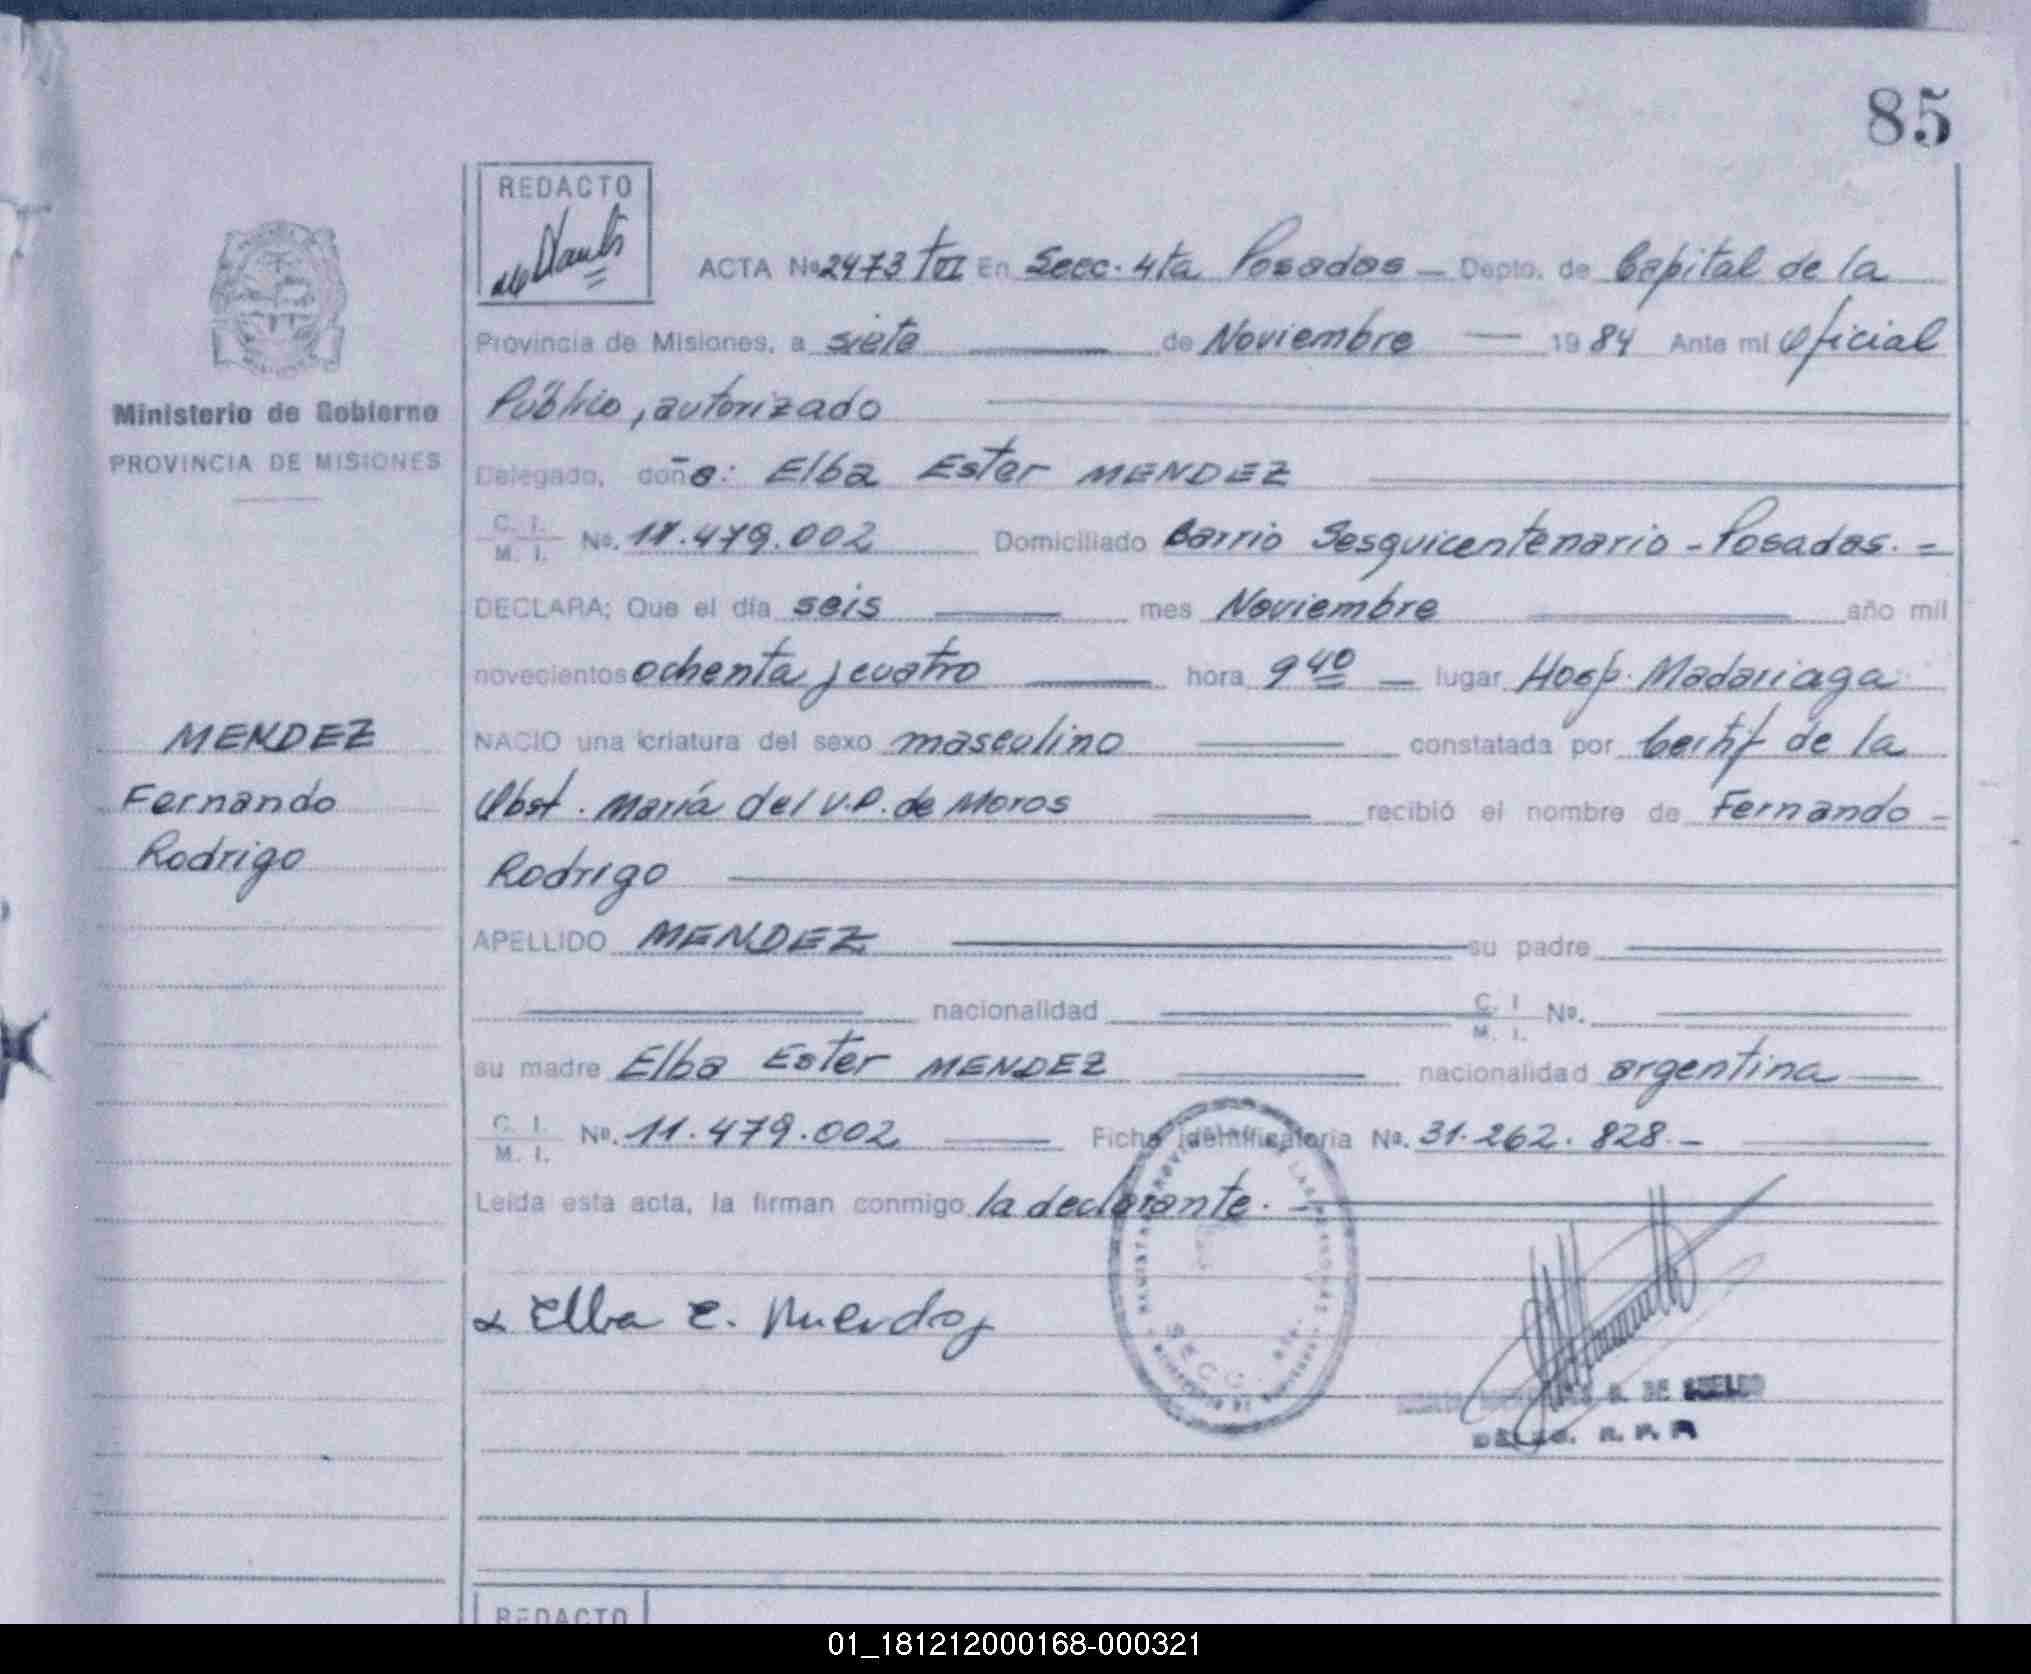 85
REDACTO
ACTA Nº 2473 TVI En Secc. 4ta Posadas — Depto. de Capital de la
Provincia de Misiones, a siete de Noviembre — 1984 Ante mi Oficial
Público, autorizado
Ministerio de Gobierno
PROVINCIA DE MISIONES
Delegado, doña: Elba Ester MENDEZ
C. I.
M. I. Nº. 11.479.002 Domiciliado Barrio Sesquicentenario - Posadas. =
DECLARA; Que el día seis mes Noviembre año mil
novecientos ochenta y cuatro hora 9 40 — lugar Hosp. Madariaga
MENDEZ
Fernando
Rodrigo
NACIO una criatura del sexo masculino constatada por Certif de la
Obst. María del V.P. de Moros recibió el nombre de Fernando -
Rodrigo
APELLIDO MENDEZ su padre
nacionalidad C. I.
M. I. Nº.
su madre Elba Ester MENDEZ nacionalidad argentina
C. I.
M. I. Nº. 11.479.002 Ficha identificatoria Nº. 31.262.828.-
Leída esta acta, la firman conmigo la declarante. -
Elba E. Mendez
SECC.
DE SUELDO
R. P. P.
REDACTO
01_181212000168-000321